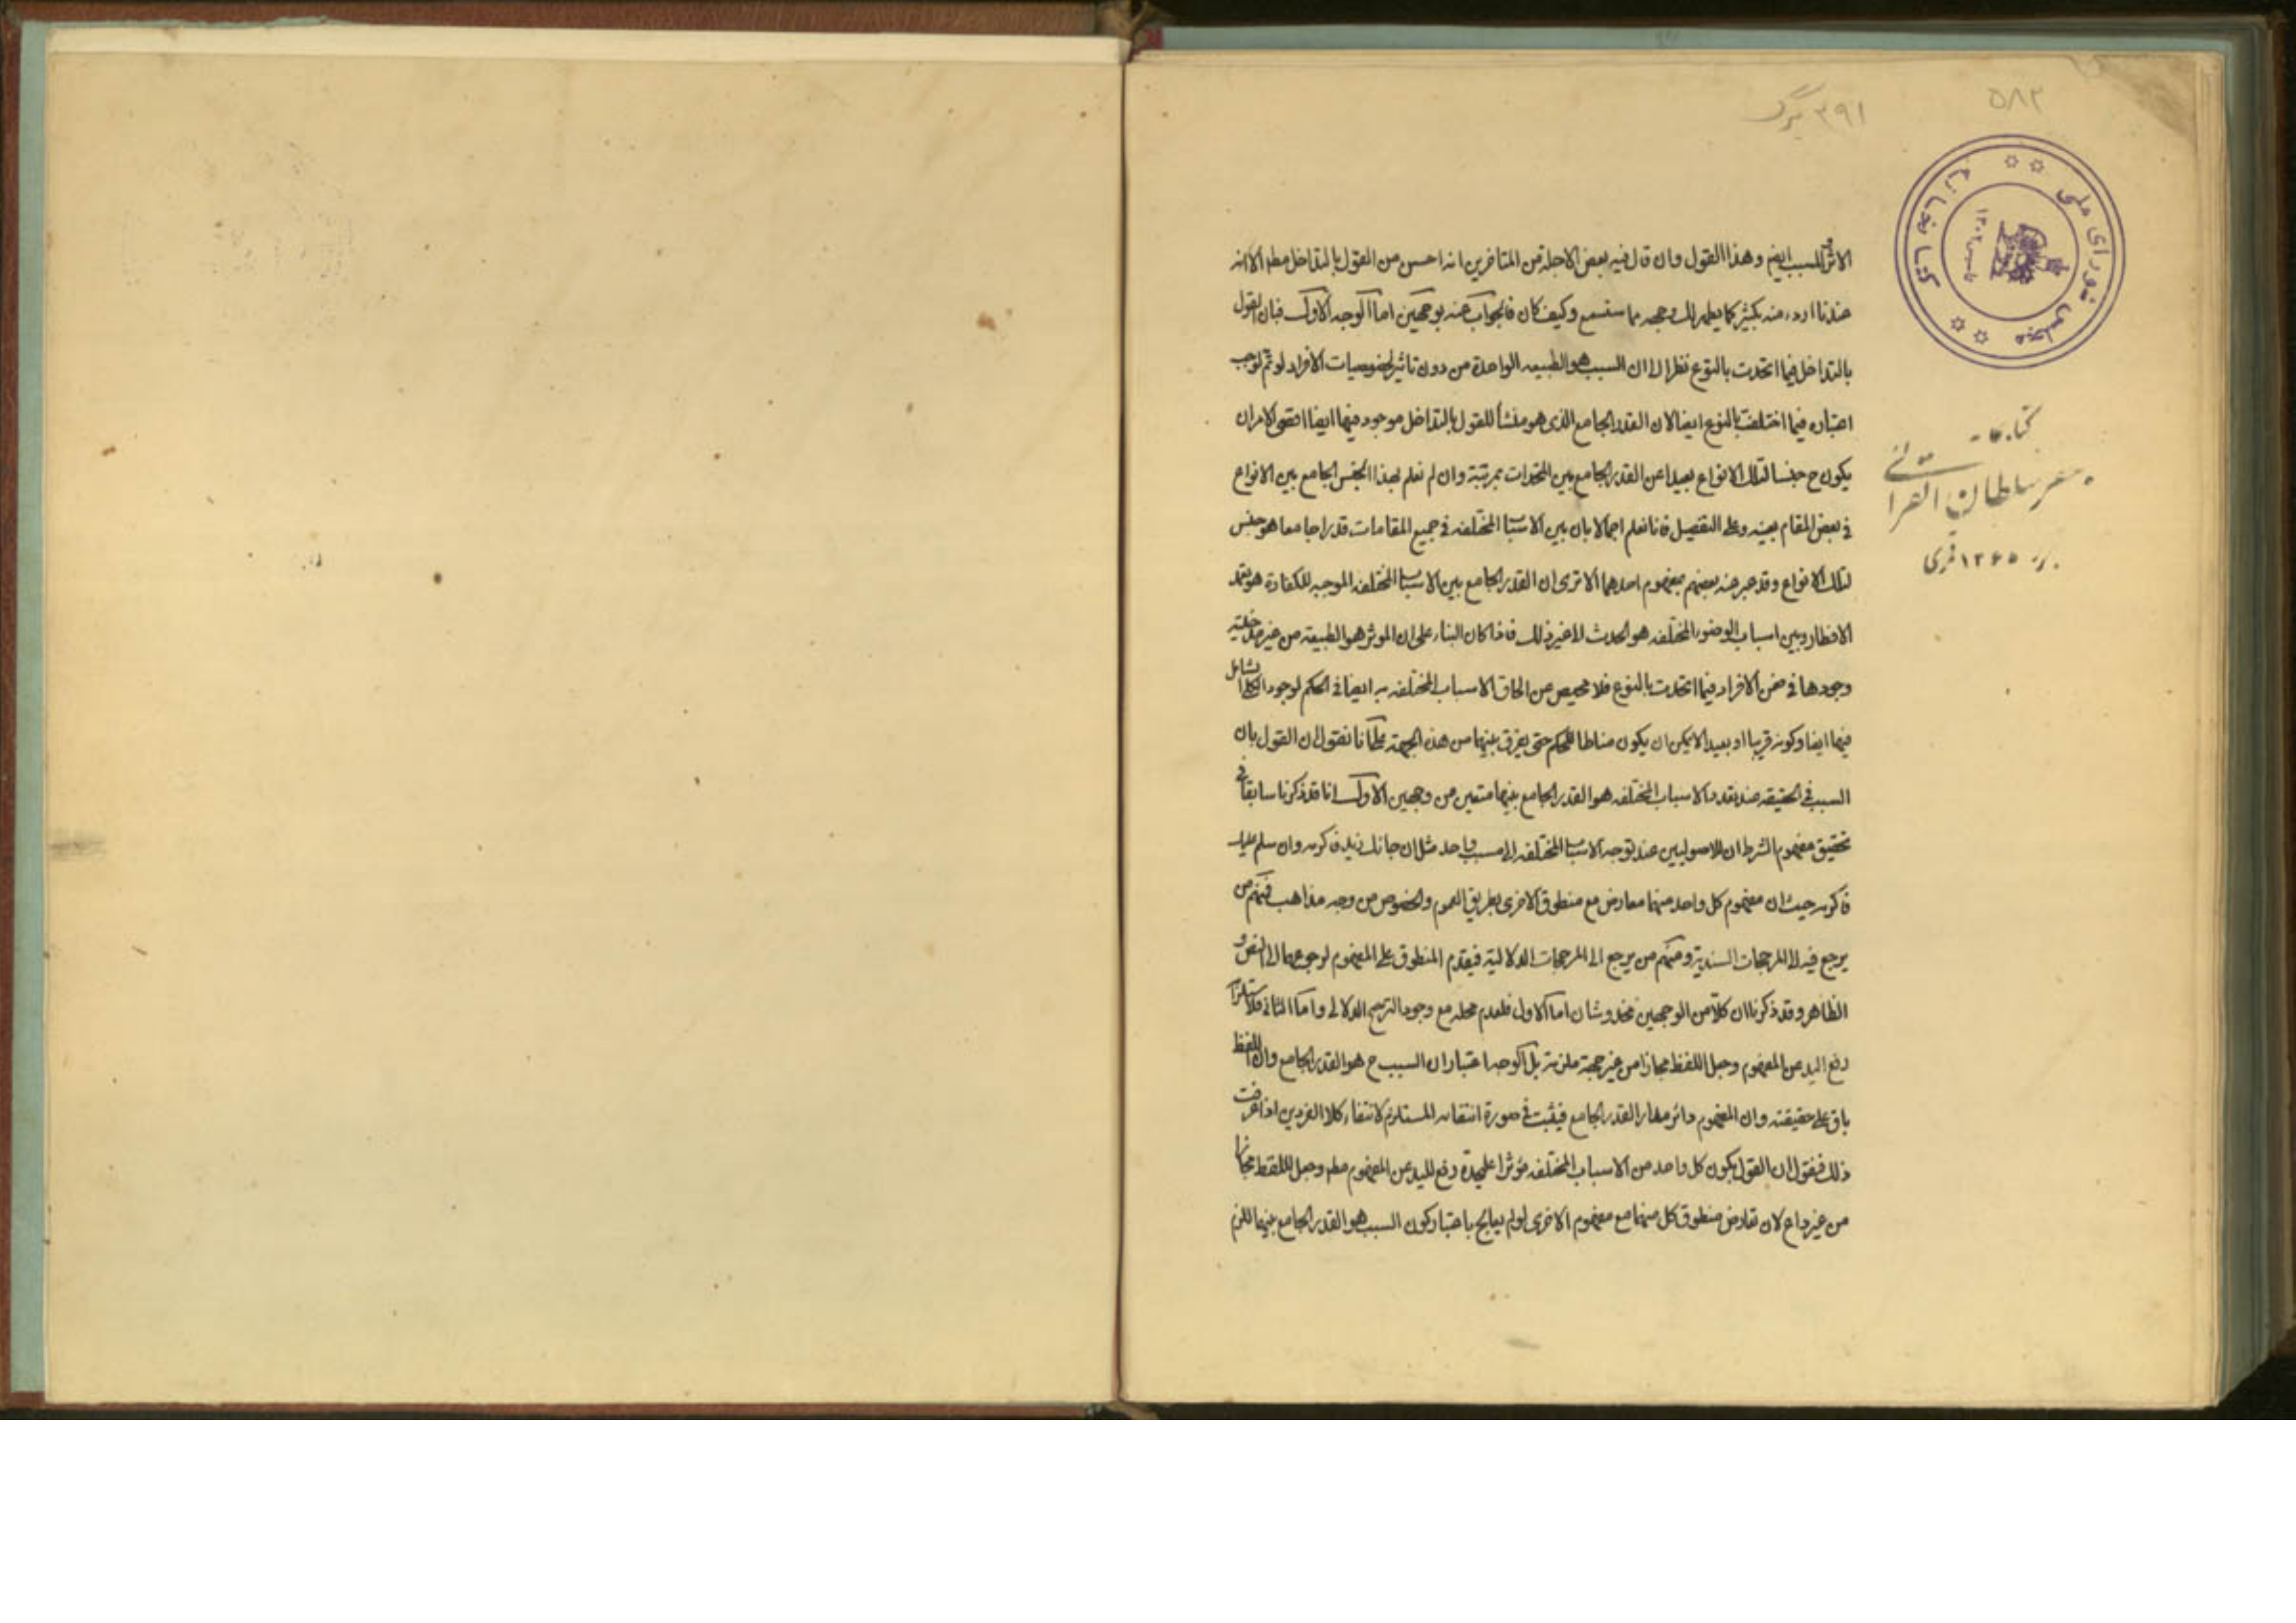 ۵۸۲
۳۹۱ برگ
کتابخانه مجلس شورای ملی
۱۳۰۲
کتابخانه
جعفر سلطان القرائی
۱۳۶۵ قمری
الاثر للسبب ايضم وهذا القول وان قال فيه بعض الاجلة من المتاخرين انه احسن من القول بالتداخل مطم الا انه
عندنا اردء منه بكثير كما يظهر لك وجهه مما ستسمع وكيف كان فالجواب عنه بوجهين اما الوجه الاول فبان القول
بالتداخل فيما اتحدت بالنوع نظرا الى ان السبب هو الطبيعه الواحدة من دون تاثير لخصوصيات الافراد لو تم لوجب
اعتباره فيما اختلفت بالنوع ايضا لان القدر الجامع الذى هو منشأ للقول بالتداخل موجود فيها ايضا اقصى الامر ان
يكون ح جنسا لتلك الانواع بعيدا عن القدر الجامع بين المتحدات بمرتبة وان لم نعلم بهذا الجنس الجامع بين الانواع
فى بعض المقام بعينه وعلى التفصيل فانا نعلم اجمالا بان بين الاسباب المختلفه فى جميع المقامات قدرا جامعا هو جنس
لتلك الانواع وقد عبر عنه بعضهم بمفهوم احدهما الا ترى ان القدر الجامع بين الاسباب المختلفه الموجبه للكفارة هو تعمد
الافطار وبين اسباب الوضوء المختلفه هو الحدث الى غير ذلك فاذا كان البناء على ان الموثر هو الطبيعة من غير مدخلية
وجودها فى ضمن الافراد فيما اتحدت بالنوع فلا محيص عن الحاق الاسباب المختلفه به ايضا فى الحكم لوجود الكلى الشامل
فيها ايضا وكونه قريبا او بعيدا لا يمكن ان يكون مناطا للحكم حتى يفرق بينهما من هذه الجهة مع انا نقول ان القول بان
السبب فى الحقيقه عند تعدد الاسباب المختلفه هو القدر الجامع بينها متعين من وجهين الاول انا قد ذكرنا سابقا فى
تحقيق مفهوم الشرط ان للاصوليين عند توجه الاسباب المختلفه الى مسبب واحد مثل ان جائك زيد فاكرمه وان سلم عليك
فاكرمه حيث ان مفهوم كل واحد منهما معارض مع منطوق الاخرى بطريق العموم والخصوص من وجه مذاهب فمنهم من
يرجع فيه الى المرجحات السندية ومنهم من يرجع الى المرجحات الدلالية فيقدم المنطوق على المفهوم لرجوعهما الى النص و
الظاهر وقد ذكرنا ان كلا من الوجهين مخدوشان اما الاول فلعدم محله مع وجود الترجيح الدلالى واما الثانى فلاستلزامه
رفع اليد عن المفهوم وجعل اللفظ مجازا من غير حجة ملزمة بل الوجه اعتبار ان السبب ح هو القدر الجامع وان اللفظ
باق على حقيقته وان المفهوم دائر مدار القدر الجامع فيثبت فى صورة انتفائه المستلزم لانتفاء كلا الفردين اذا عرفت
ذلك فنقول ان القول بكون كل واحد من الاسباب المختلفه مؤثرا عليحدة رفع لليد عن المفهوم مطم وجعل للفظ مجازا
من غير داع لان تعارض منطوق كل منهما مع مفهوم الاخرى لو لم يعالج باعتبار كون السبب هو القدر الجامع بينهما للزم